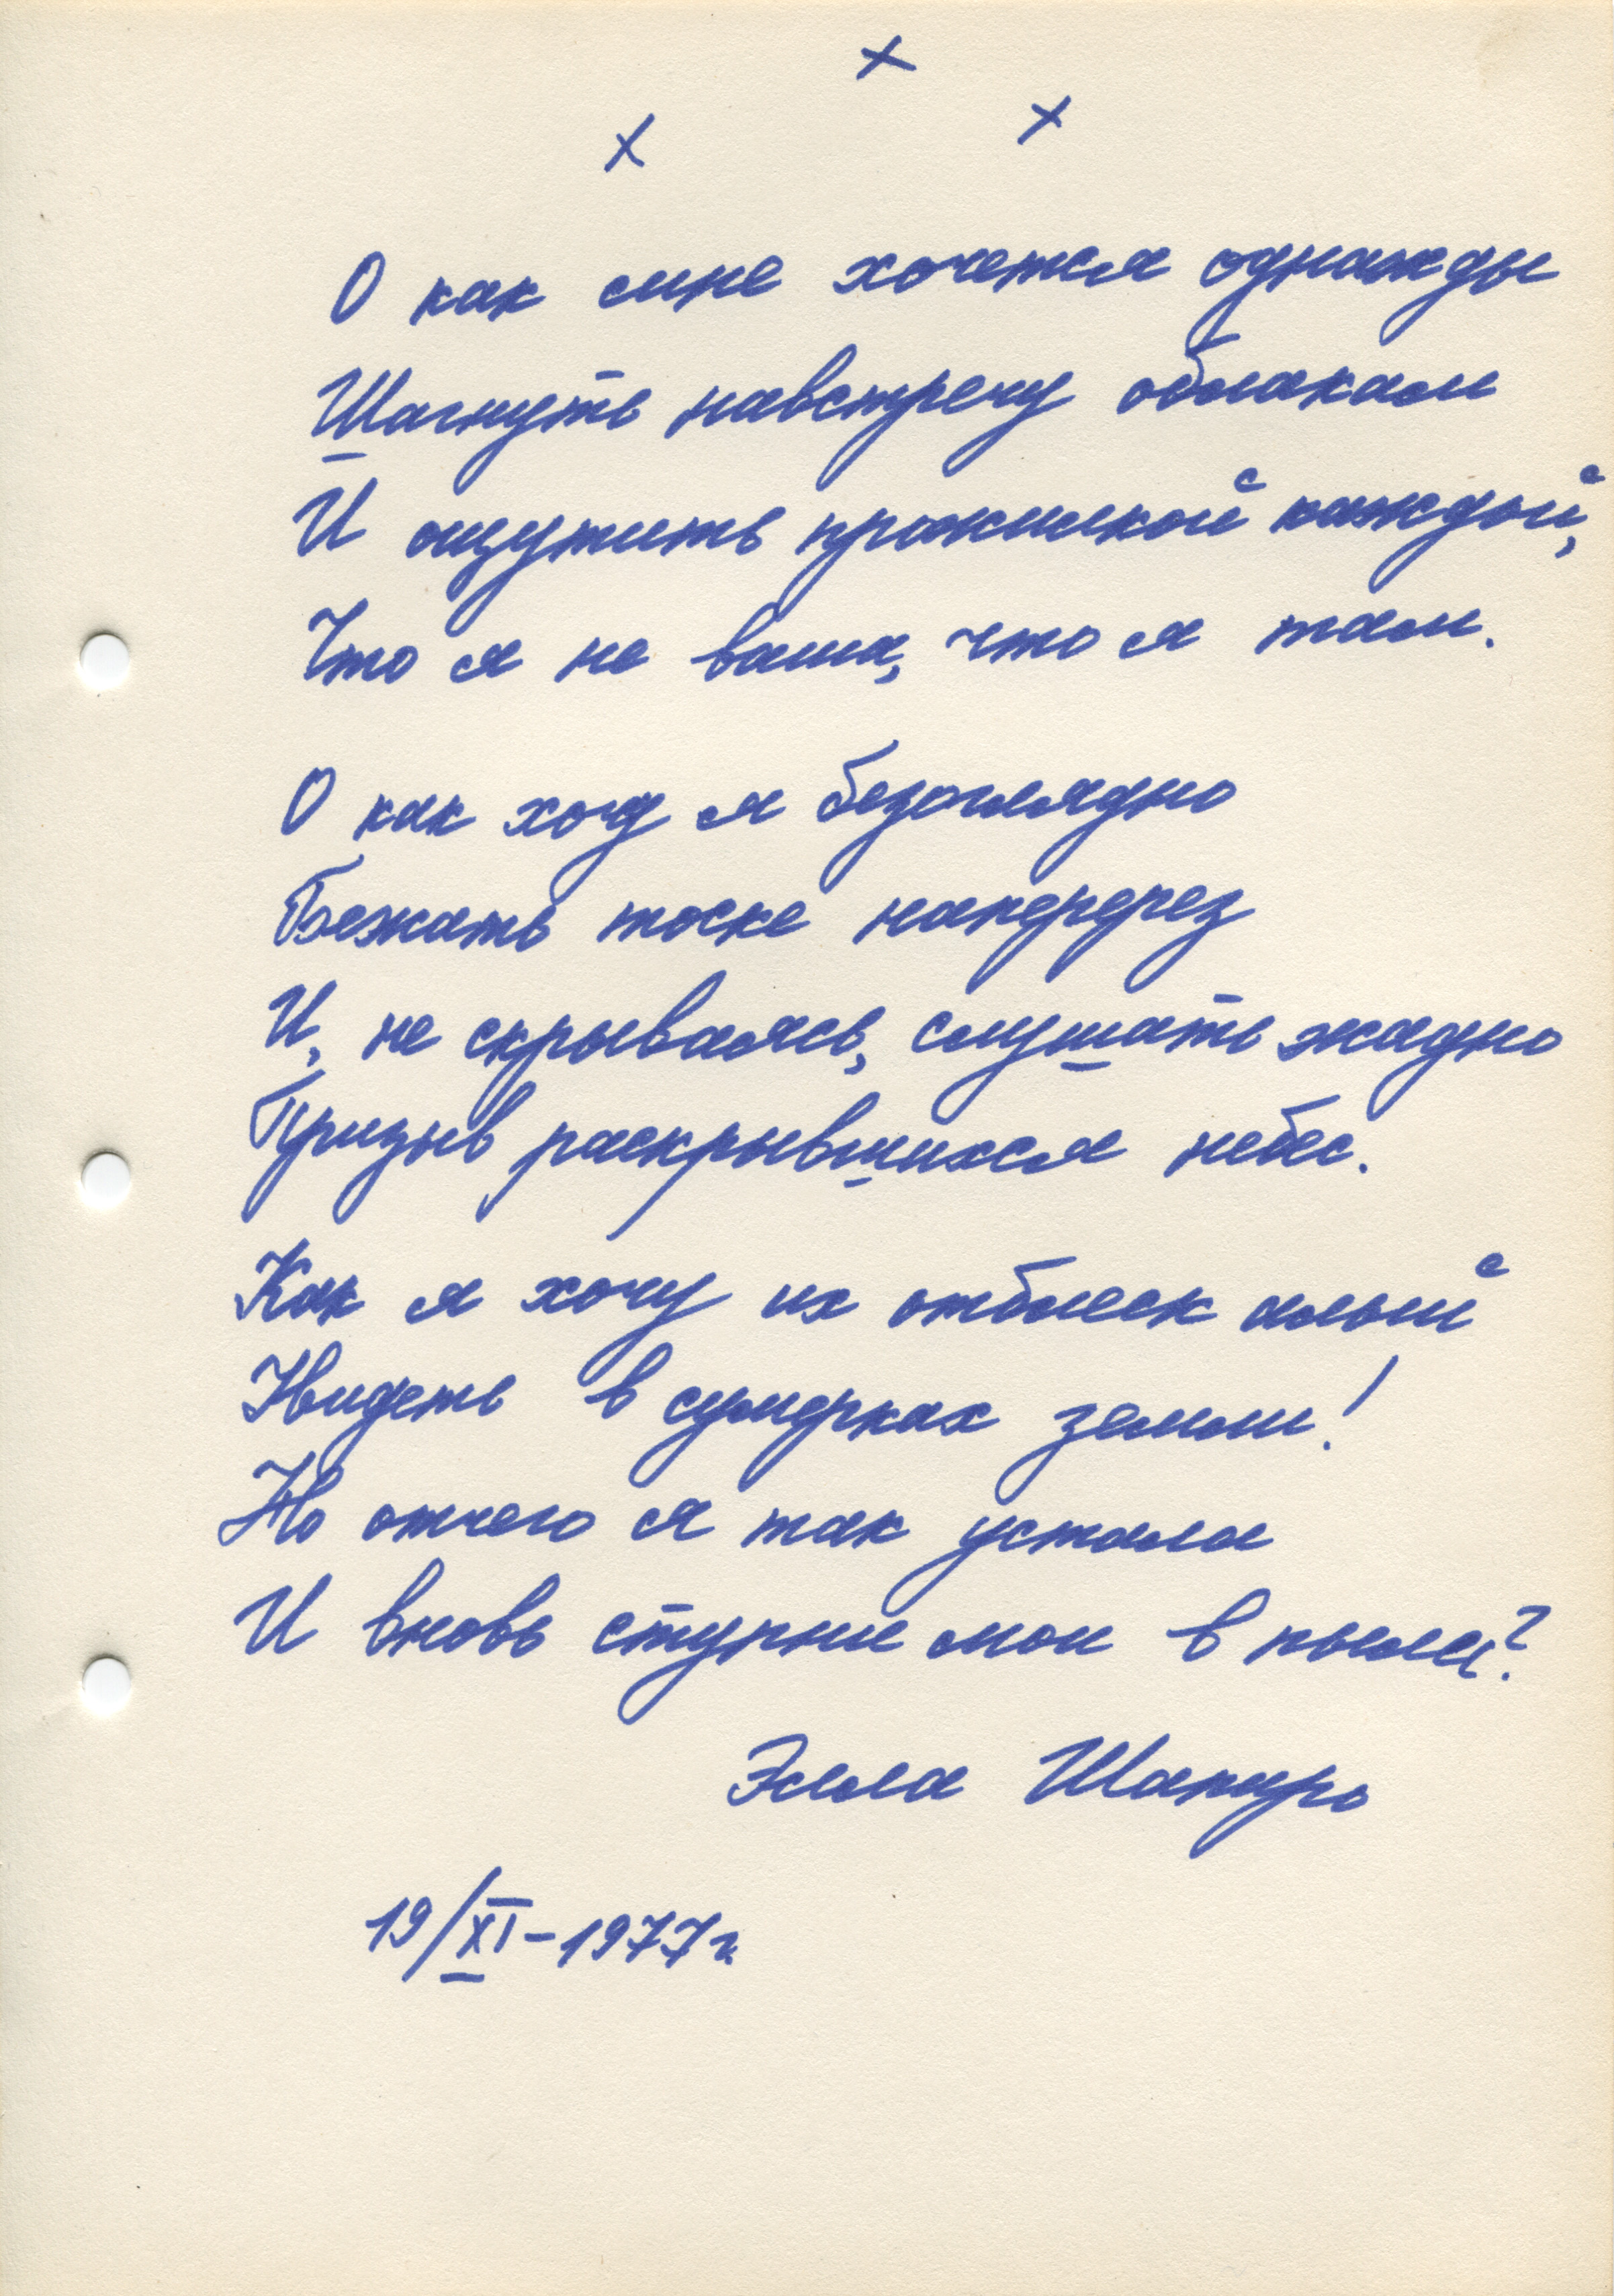 x
x x
О как мне хочется однажды
Шагнуть навстречу облакам
И ощутить прожилкой каждой,
Что я не ваша, что я там.
О как хочу я безоглядно
Бежать тоске наперерез
И, не скрываясь, слушать жадно
Призыв раскрывшихся небес.
Как я хочу их отблеск алый
Увидеть в сумерках земли!
Но отчего я так устала
И вновь ступни мои в пыли?
Элла Шапиро
19/XI-1977г.